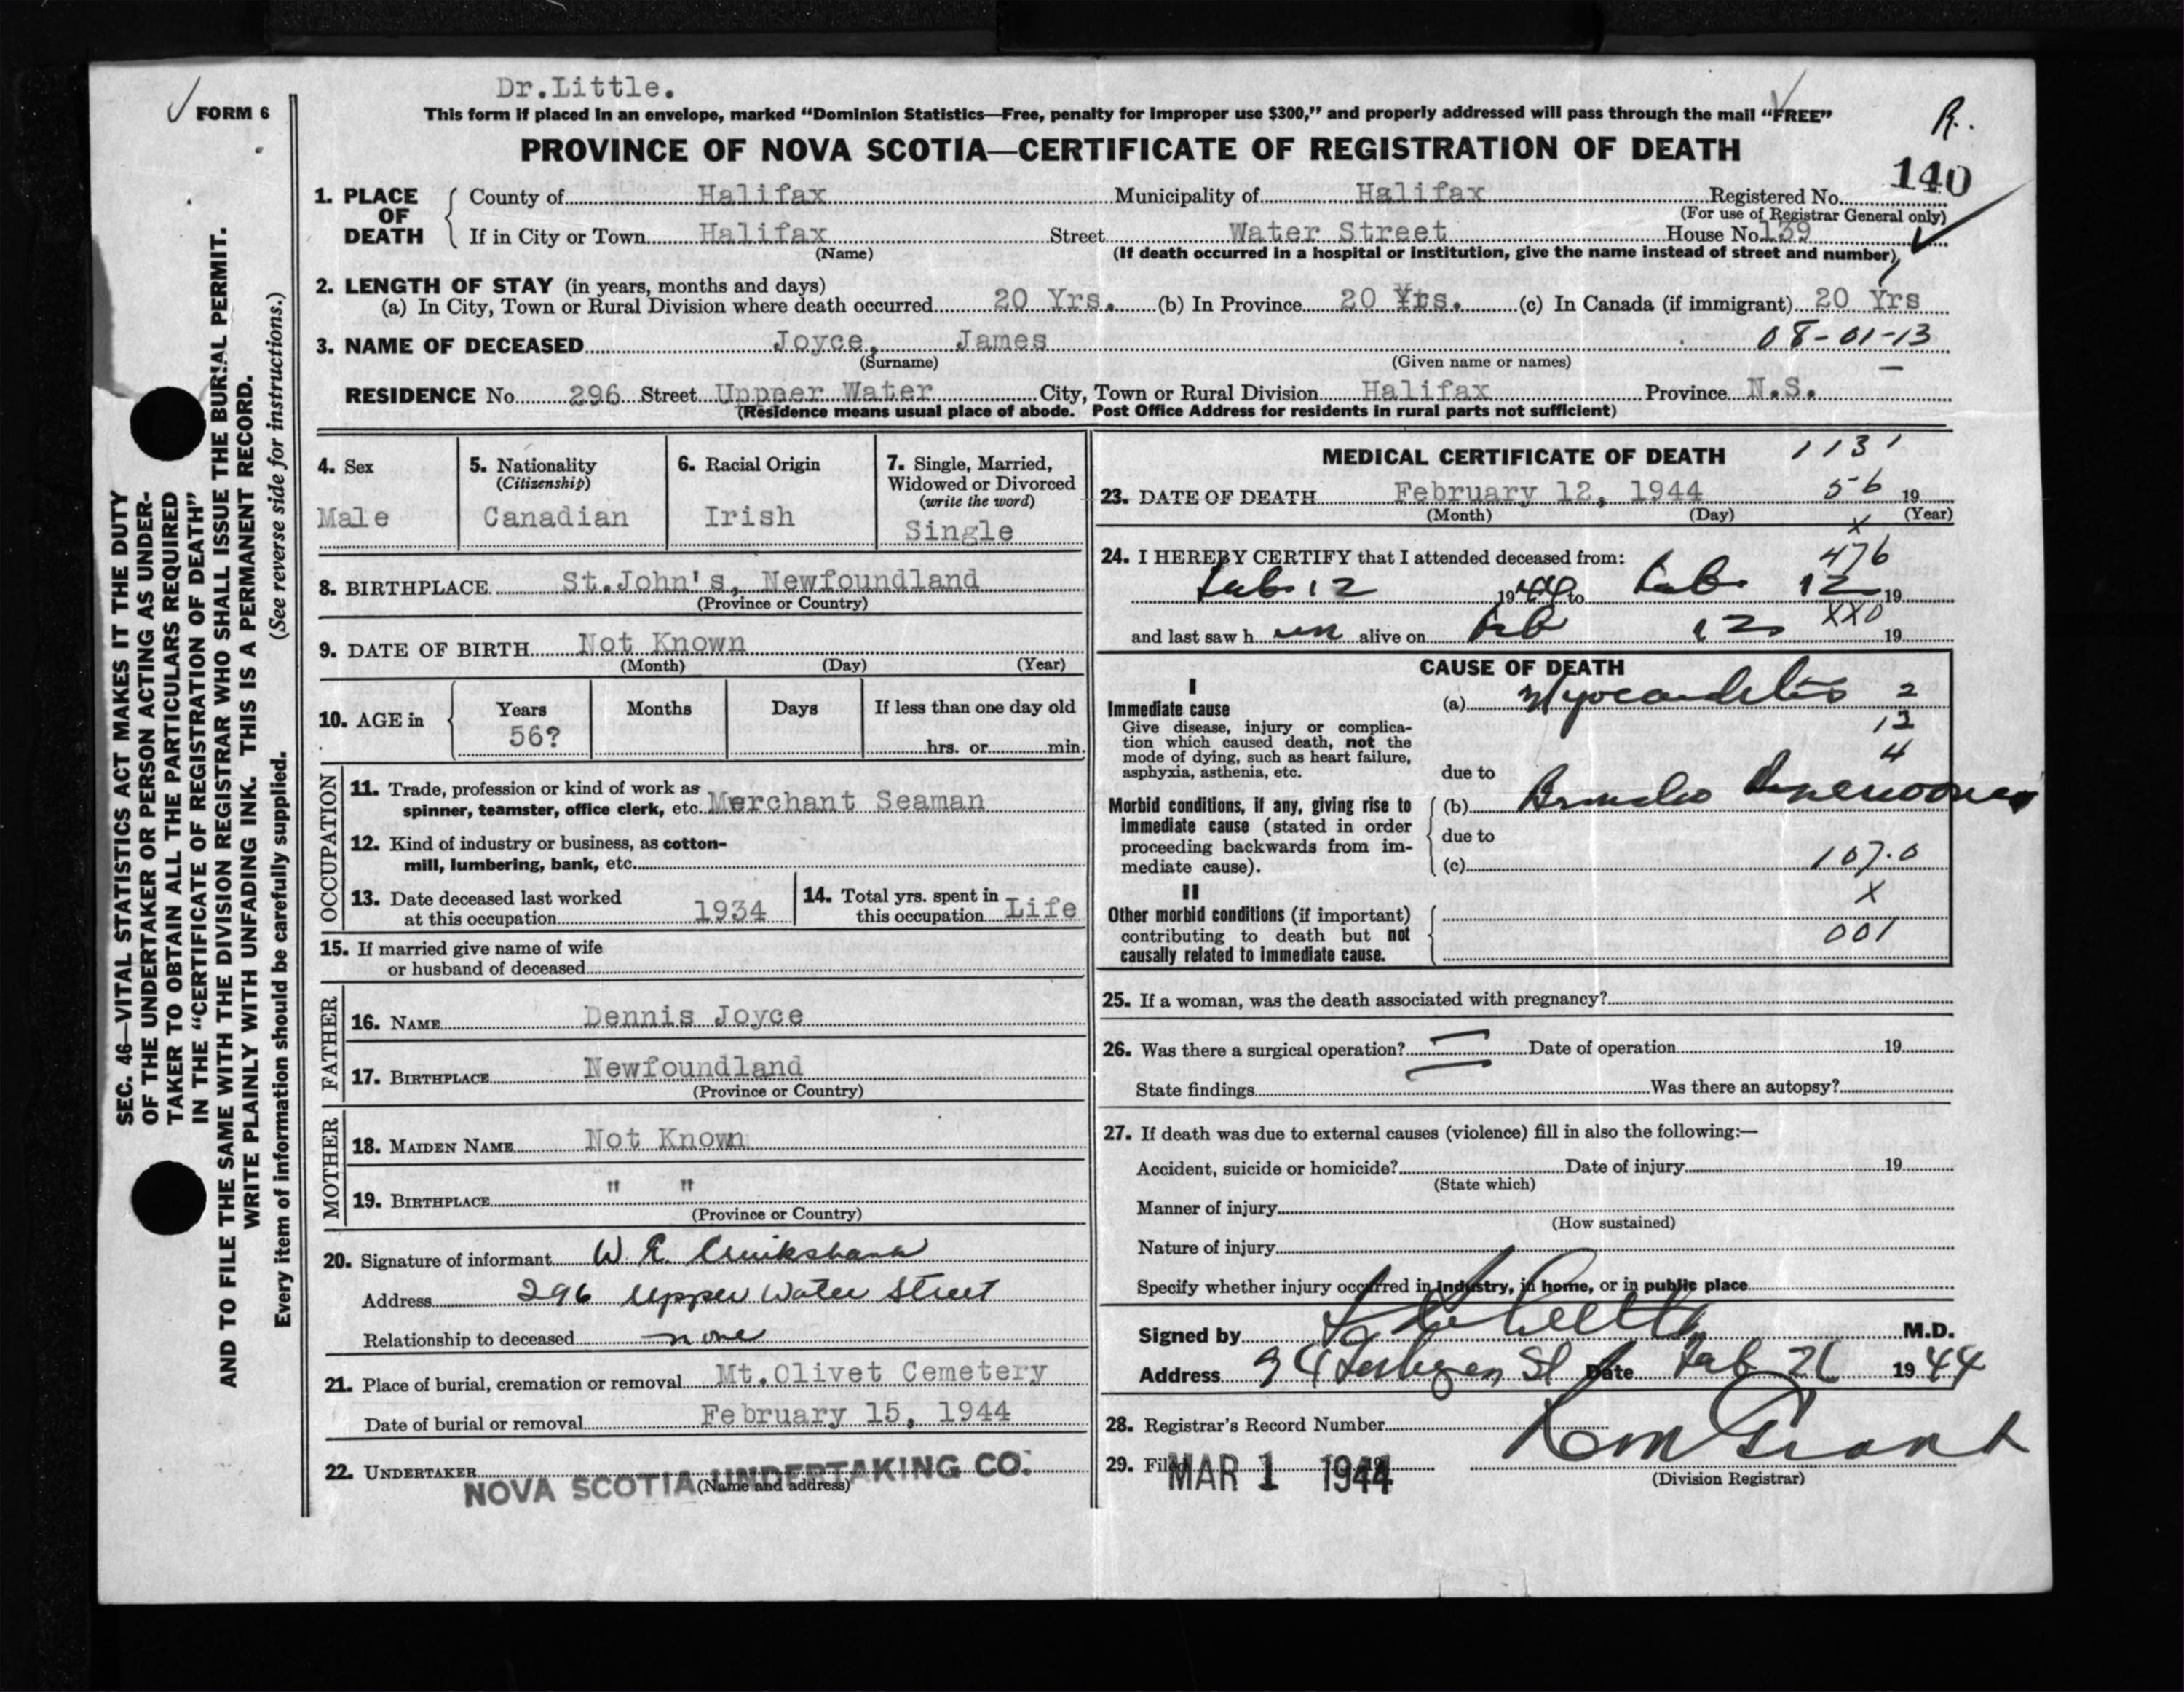 Dr.Little.
FORM 6
This form if placed in an envelope, marked "Dominion Statistics—Free, penalty for improper use $300," and properly addressed will pass through the mail "FREE"
R.
PROVINCE OF NOVA SCOTIA—CERTIFICATE OF REGISTRATION OF DEATH
140
1. PLACE OF DEATH
County of Halifax Municipality of Halifax Registered No.
(For use of Registrar General only)
If in City or Town Halifax Street Water Street House No 139
(Name) (If death occurred in a hospital or institution, give the name instead of street and number)
2. LENGTH OF STAY (in years, months and days)
(a) In City, Town or Rural Division where death occurred 20 Yrs. (b) In Province 20 Yrs. (c) In Canada (if immigrant) 20 Yrs
3. NAME OF DECEASED Joyce, James 08-01-13
(Surname) (Given name or names)
RESIDENCE No. 296 Street Uppper Water City, Town or Rural Division Halifax Province N.S.
(Residence means usual place of abode. Post Office Address for residents in rural parts not sufficient)
4. Sex
Male
5. Nationality
(Citizenship)
Canadian
6. Racial Origin
Irish
7. Single, Married,
Widowed or Divorced
(write the word)
Single
8. BIRTHPLACE St.John's, Newfoundland
(Province or Country)
9. DATE OF BIRTH Not Known
(Month) (Day) (Year)
10. AGE in
Years Months Days If less than one day old
56? hrs. or min.
OCCUPATION
11. Trade, profession or kind of work as
spinner, teamster, office clerk, etc. Merchant Seaman
12. Kind of industry or business, as cotton-
mill, lumbering, bank, etc.
13. Date deceased last worked
at this occupation 1934
14. Total yrs. spent in
this occupation Life
15. If married give name of wife
or husband of deceased
FATHER
16. NAME Dennis Joyce
17. BIRTHPLACE Newfoundland
(Province or Country)
MOTHER
18. MAIDEN NAME Not Known
19. BIRTHPLACE " "
(Province or Country)
20. Signature of informant W E. Cruikshank
Address 296 Upper Water Street
Relationship to deceased none
21. Place of burial, cremation or removal Mt.Olivet Cemetery
Date of burial or removal February 15, 1944
22. UNDERTAKER NOVA SCOTIA UNDERTAKING CO.
(Name and address)
MEDICAL CERTIFICATE OF DEATH 1131
23. DATE OF DEATH February 12, 1944 56 19
(Month) (Day) (Year)
x
24. I HEREBY CERTIFY that I attended deceased from: 476
Feb 12 1944 to Feb 12 19
and last saw h im alive on Feb 12 XX0 19
CAUSE OF DEATH
I
Immediate cause
Give disease, injury or complica-
tion which caused death, not the
mode of dying, such as heart failure,
asphyxia, asthenia, etc.
(a) Myocarditis 2
12
4
due to
Morbid conditions, if any, giving rise to
immediate cause (stated in order
proceeding backwards from im-
mediate cause).
(b) Broncho Pneumonia
due to
(c) 107.0
X
II
Other morbid conditions (if important)
contributing to death but not
causally related to immediate cause.
001
25. If a woman, was the death associated with pregnancy?
26. Was there a surgical operation? Date of operation 19
State findings Was there an autopsy?
27. If death was due to external causes (violence) fill in also the following:—
Accident, suicide or homicide? Date of injury 19
(State which)
Manner of injury
(How sustained)
Nature of injury
Specify whether injury occurred in industry, in home, or in public place
Signed by M.D.
Address 94 St Date Feb 1944
28. Registrar's Record Number
29. Filed MAR 1 1944
(Division Registrar)
SEC. 46—VITAL STATISTICS ACT MAKES IT THE DUTY
OF THE UNDERTAKER OR PERSON ACTING AS UNDER-
TAKER TO OBTAIN ALL THE PARTICULARS REQUIRED
IN THE "CERTIFICATE OF REGISTRATION OF DEATH"
AND TO FILE THE SAME WITH THE DIVISION REGISTRAR WHO SHALL ISSUE THE BURIAL PERMIT.
WRITE PLAINLY WITH UNFADING INK. THIS IS A PERMANENT RECORD.
Every item of information should be carefully supplied. (See reverse side for instructions.)